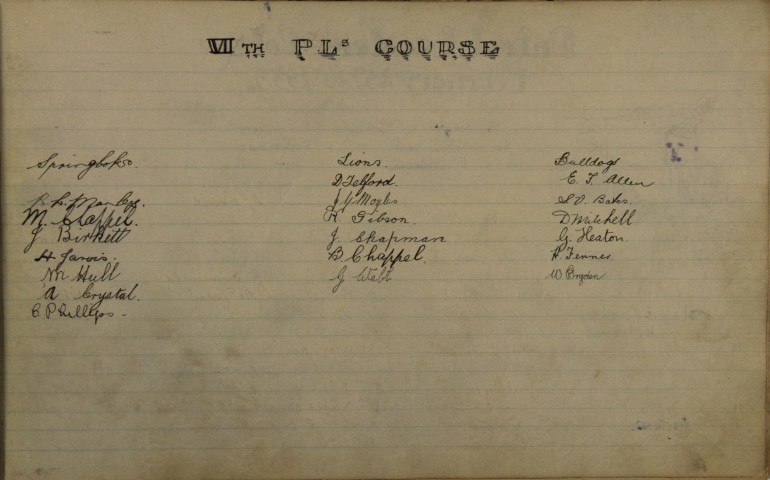 VITH PLs COURSE
Springboks.
M. Chappel
J Birkett
H Jarvis.
N Hull
A Crystal.
C. Phillips.
Lions.
D Telford.
J G Moyles
R Gibson.
J Chapman
B Chappel.
G Webb
Bulldogs
E. T. Allen
S. V. Bates.
D Mitchell
G. Heaton.
A. Fenner.
W Brogden